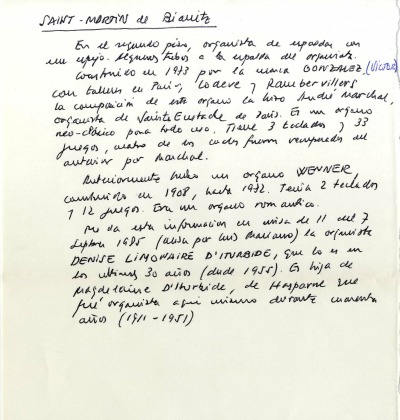 SAINT-MARTIN de Biarritz
En el segundo piso, organista de espaldas con
un espejo. Algunos tubos a la espalda del organista.
Construido en 1973 por la marca GONZALEZ (VICTOR)
con talleres en Paris, Lodeve y Rambervillers
la composición de este organo la hizo André Marchal,
organista de Sainte Eustache de Paris. Es un organo
neo-clásico para todo uso. Tiene 3 teclados y 33
juegos, cuatro de los cuales fueron recuperados del
anterior por Marchal.
Anteriormente hubo un organo WENNER,
construido en 1908, hasta 1972. Tenia 2 teclados
y 12 juegos. Era un organo romantico.
Me da esta informacion en misa de 11 del 7
Septbre 1985 (aviso por Luis Mariano) la organista
DENISE LIMONAIRE D'ITURBIDE, que lo es en
los ultimos 30 años (desde 1955). Es hija de
Magdeleine D'Iturbide, de Hasparne que
fué organista aqui mismo durante cuarenta
años (1911-1951)